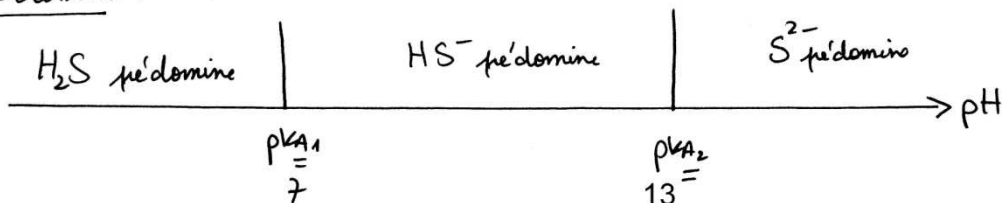 H₂S pédomine HS⁻ pédomine S²⁻ pédomine
pH
pKA₁ pKA₂
= =
7 13